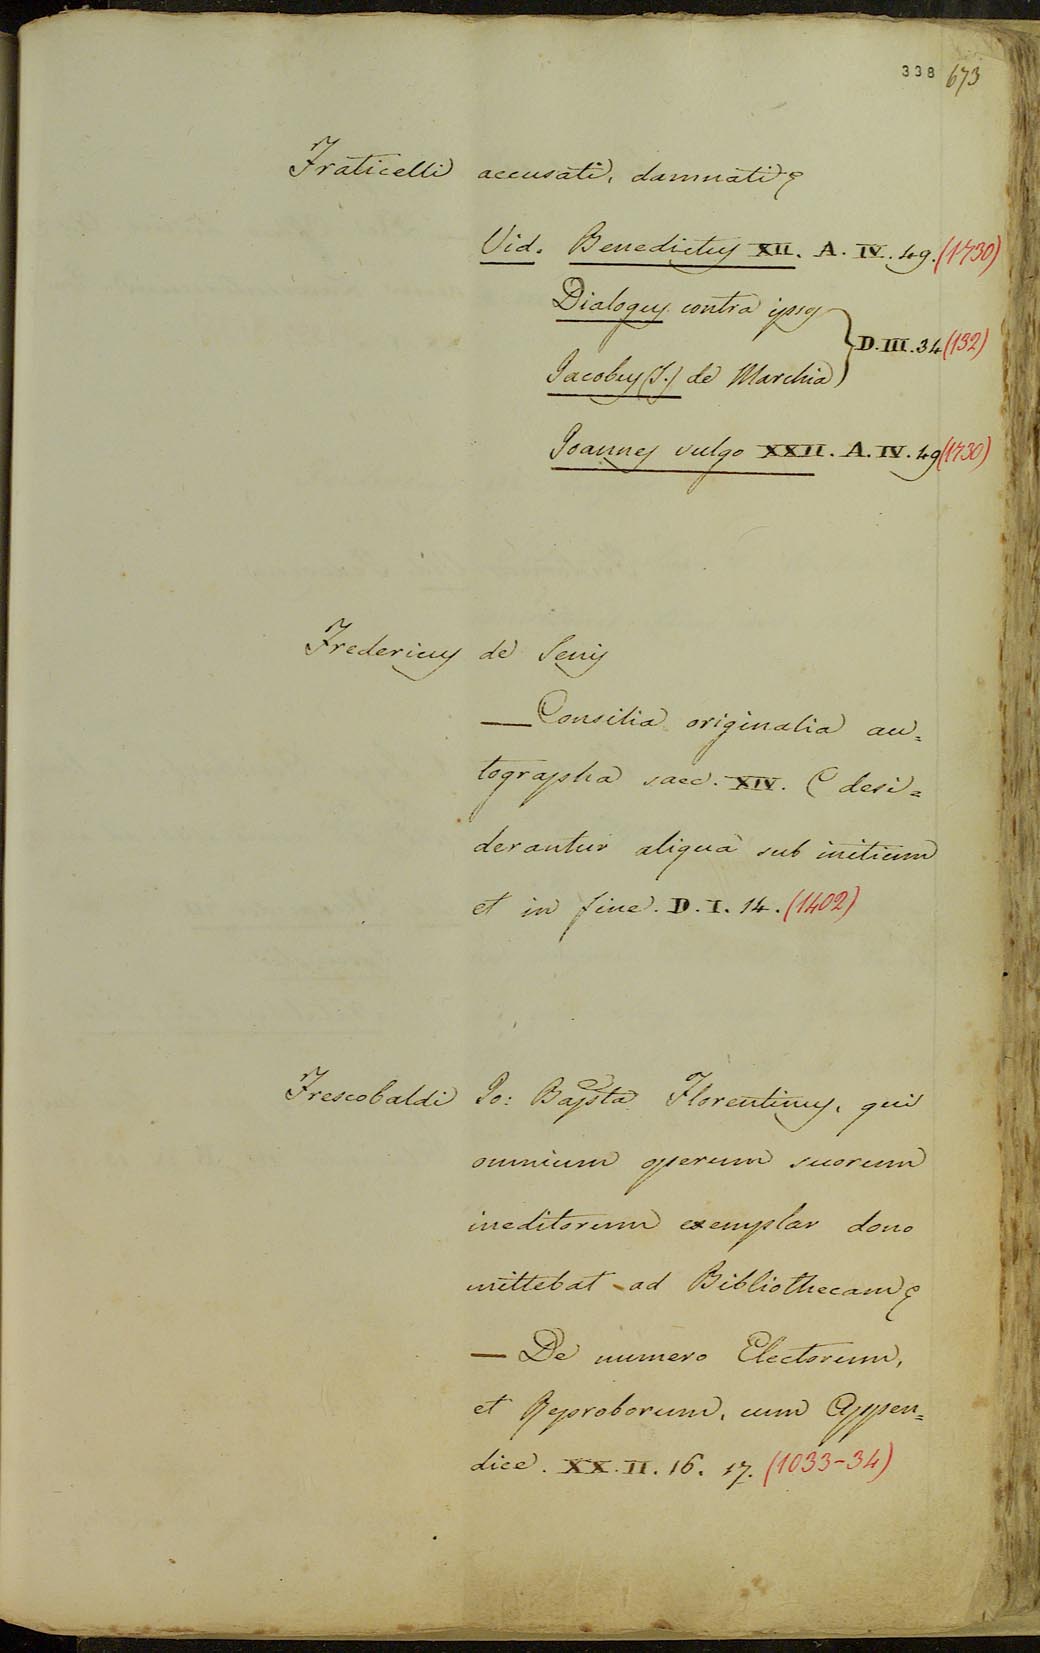 338 673
Fraticelli accusati, damnati;
Vid. Benedictus XII. A. IV. 49. (1730)
Dialogus contra ipsos
D. III. 34 (132)
Jacobus (S.) de Marchia
Joannes vulgo XXII. A. IV. 49 (1730)
Fredericus de Senis
— Consilia originalia au=
tographa saec. XIV. (desi=
derantur aliqua sub initium
et in fine. D. I. 14. (1402)
Frescobaldi Jo: Bapsta Florentinus, qui
omnium operum suorum
ineditorum exemplar dono
mittebat ad Bibliothecam;
— De numero Electorum,
et Reproborum, cum Appen=
dice. XX. II. 16. 17. (1033-34)